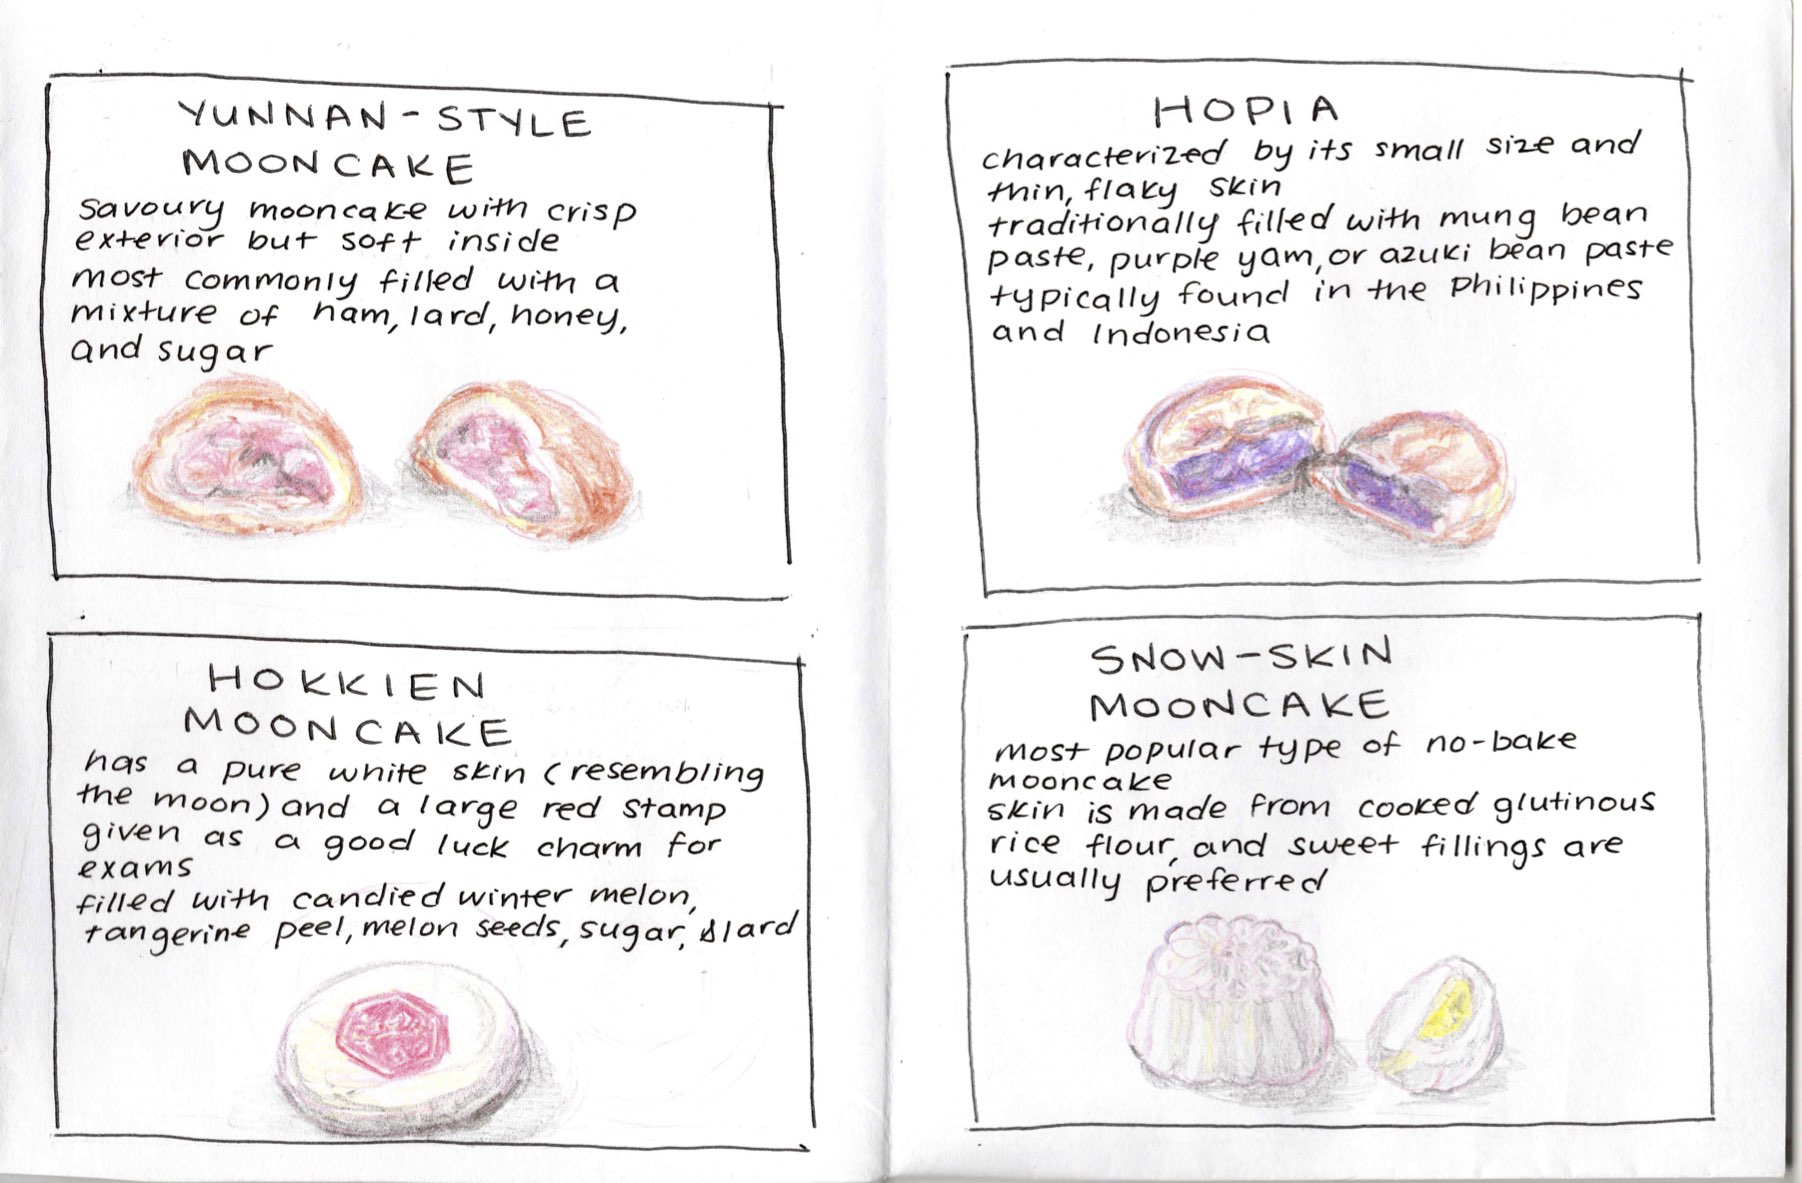 YUNNAN-STYLE
MOONCAKE
savoury mooncake with crisp
exterior but soft inside
most commonly filled with a
mixture of ham, lard, honey,
and sugar
HOKKIEN
MOONCAKE
has a pure white skin (resembling
the moon) and a large red stamp
given as a good luck charm for
exams
filled with candied winter melon,
tangerine peel, melon seeds, sugar, & lard
HOPIA
characterized by its small size and
thin, flaky skin
traditionally filled with mung bean
paste, purple yam, or azuki bean paste
typically found in the Philippines
and Indonesia
SNOW-SKIN
MOONCAKE
most popular type of no-bake
mooncake
skin is made from cooked glutinous
rice flour, and sweet fillings are
usually preferred